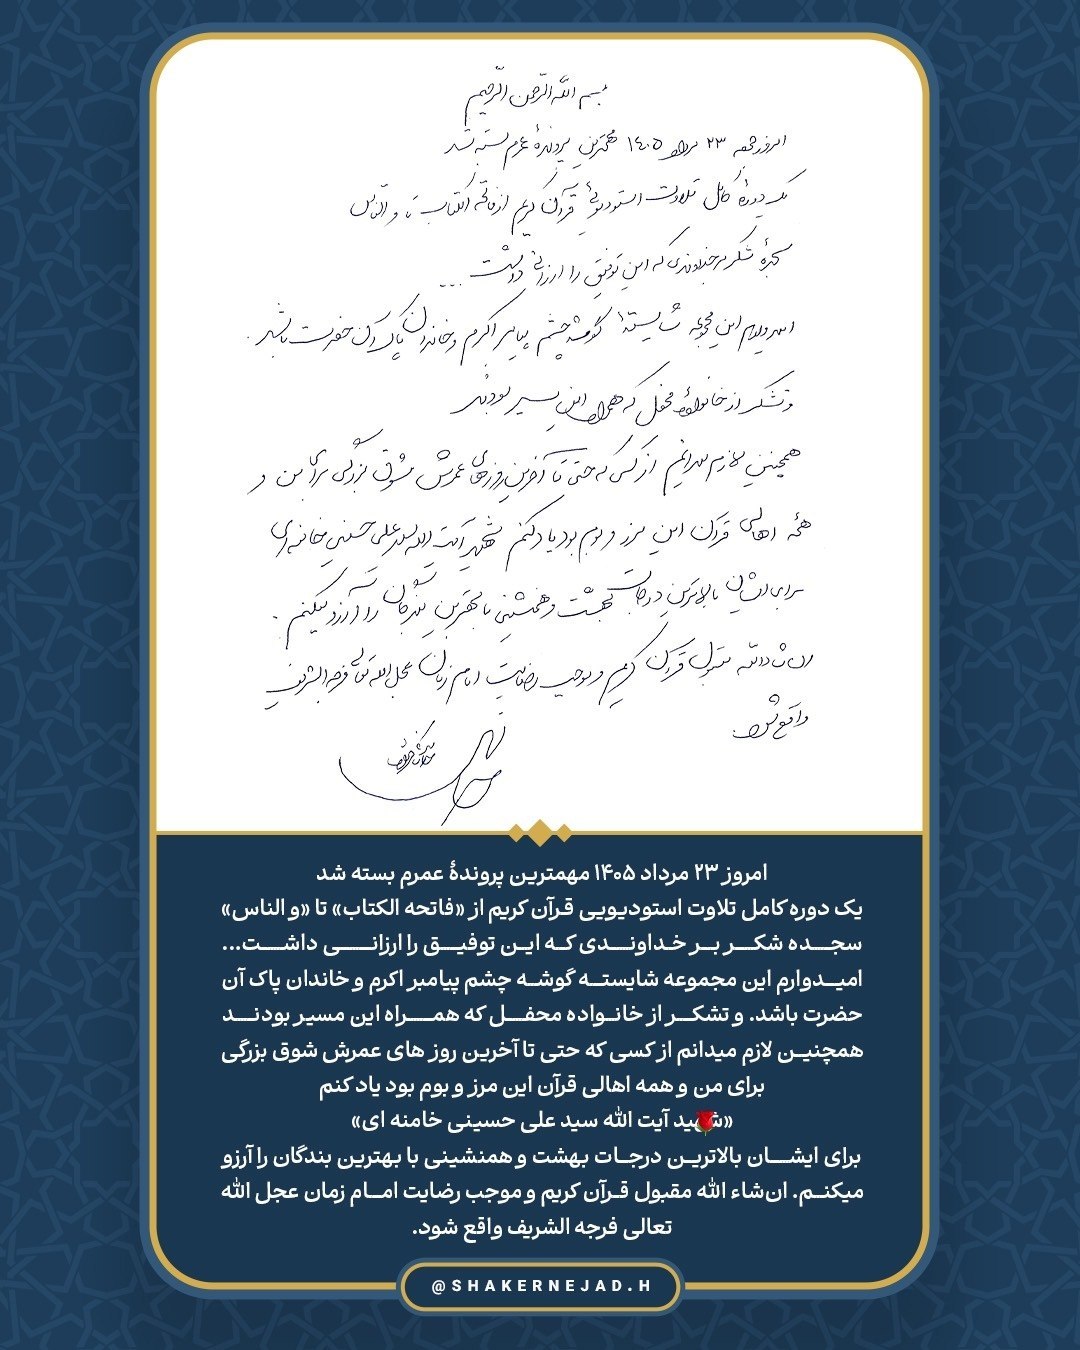 بسم الله الرحمن الرحیم
امروز جمعه ۲۳ مرداد ۱۴۰۵ مهمترین پروندهٔ عمرم بسته شد
یک دورهٔ کامل تلاوت استودیویی قرآن کریم از فاتحه الکتاب تا و النّاس
سجدهٔ شکر بر خداوندی که این توفیق را ارزانی داشت ...
امیدوارم این مجموعه شایستهٔ گوشه چشم پیامبر اکرم و خاندان پاک آن حضرت باشد.
و تشکر از خانوادهٔ محفل که همراه این مسیر بودند
همچنین لازم میدانم از کسی که حتی تا آخرین روزهای عمرش مشوق بزرگی برای من و
همه اهالی قرآن این مرز و بوم بود یاد کنم شهید آیت الله سید علی حسینی خامنه ای
برای ایشان بالاترین درجات بهشت و همنشینی با بهترین بندگان را آرزو میکنم.
ان شاءالله مقبول قرآن کریم و موجب رضایت امام زمان عجل الله تعالی فرجه الشریف
واقع شود.
امروز ۲۳ مرداد ۱۴۰۵ مهمترین پروندهٔ عمرم بسته شد
یک دوره کامل تلاوت استودیویی قرآن کریم از «فاتحه الکتاب» تا «و الناس»
سجـــده شکـــر بـــر خـداونـــدی کـه ایـــن توفیـــق را ارزانـــی داشـــت...
امیـــدوارم این مجموعه شایستـــه گوشـــه چشم پیامبر اکرم و خاندان پاک آن
حضرت باشد. و تشکـــر از خانـــواده محفـــل که همـــراه این مسیـر بودنـــد
همچنیـــن لازم میدانم از کسی که حتی تا آخرین روز های عمرش شوق بزرگی
برای من و همه اهالی قرآن این مرز و بوم بود یاد کنم
«شهید آیت الله سید علی حسینی خامنه ای»
برای ایشـــان بالاتریـــن درجـــات بهشت و همنشینی با بهترین بندگان را آرزو
میکنـــم. ان‌شاء الله مقبول قـرآن کریم و موجب رضایت امـــام زمان عجل الله
تعالی فرجه الشریف واقع شود.
@SHAKERNEJAD.H